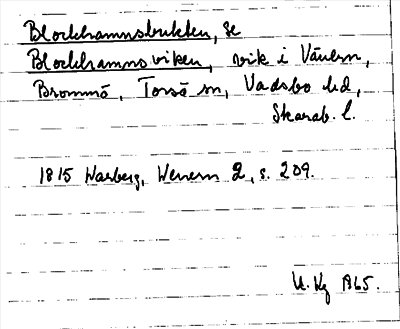 Blockhamnsbukten, se
Blockhamnsviken, vik i Vänern,
Brommö, Torsö sn, Vadsbo hd,
Skarab. l.
1815 Warberg, Wenern 2, s. 209.
U. Hg 1965.